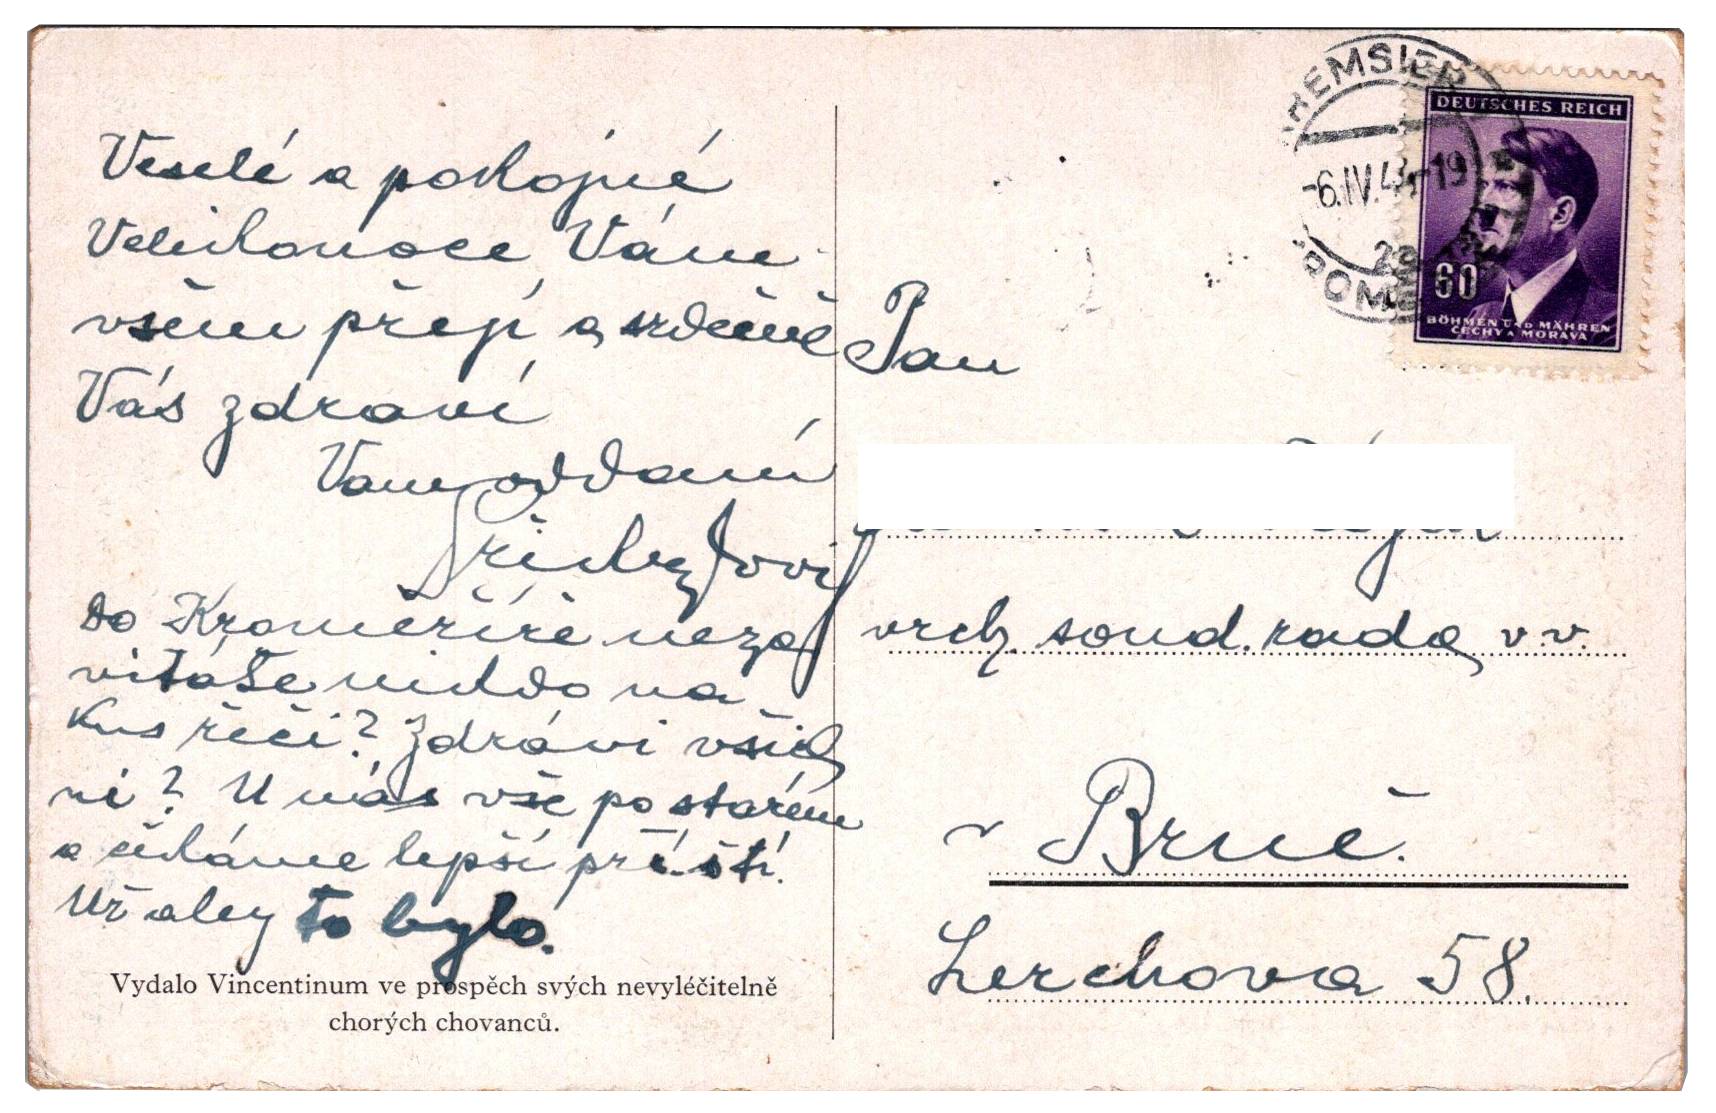 Veselé a pokojné
Velikonoce Vám
všem přejí a srdečně
Vás zdraví
Vám oddaní
do Kroměříže neza
vítáte někdo na
kus řeči? Zdrávi všich
ni? U nás vše po starém
a čekáme lepší příští.
Už aby to bylo.
Vydalo Vincentinum ve prospěch svých nevyléčitelně
chorých chovanců.
REMSIER
-6.IV.4 -19
ROM
DEUTSCHES REICH
60
BÖHMEN UND MÄHREN
ČECHY A MORAVA
Pan
vrch. soud. rada v.v.
v Brně.
Lerchova 58.